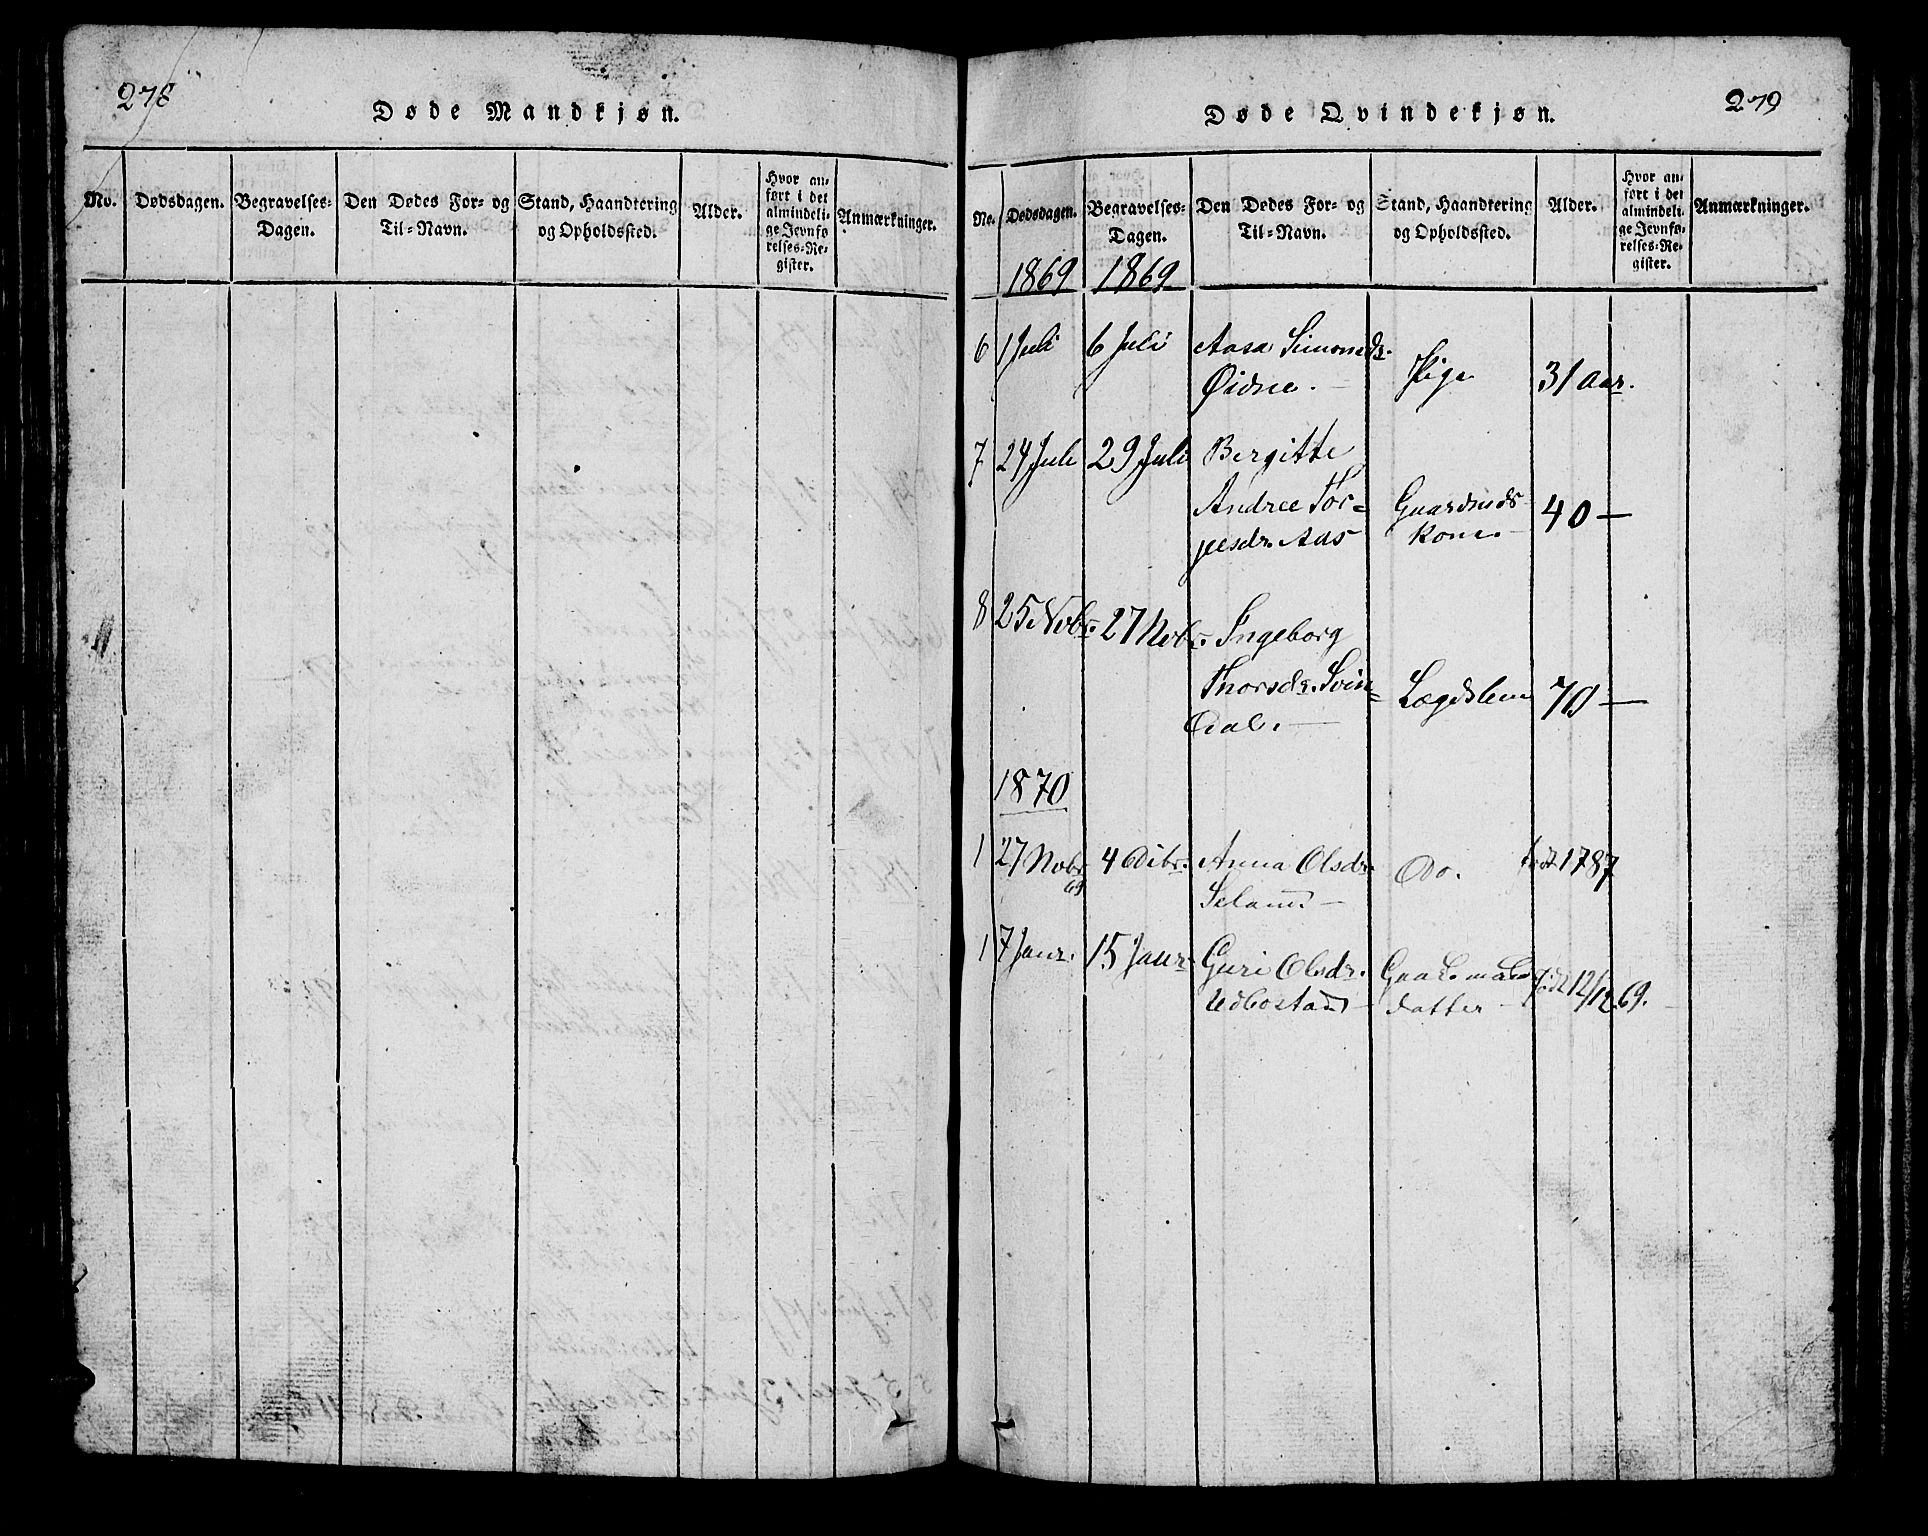 278
Døde Mandkjøn.
No. Dødsdagen. Begravelses-Dagen. Den Dødes For- og Til-Navn. Stand, Haandtering og Opholdssted. Alder. Hvor anført i det almindelige Jevnførelses-Register. Anmærkninger.
279
Døde Qvindekjøn.
No. Dødsdagen. Begravelses-Dagen. Den Dødes For- og Til-Navn. Stand, Haandtering og Opholdssted. Alder. Hvor anført i det almindelige Jevnførelses-Register. Anmærkninger.
1869 1869
6 1 Juli 6 Juli Aasa Simonsdr.
Øidne. — Pige 31 Aar.
7 24 Juli 29 Juli Bergitte
Andrea Tor=
jusdr. Aas Gaardmds
Kone. 40 —
8 25 Novbr. 27 Novbr. Ingeborg
Thorsdr. Svin=
dal. — Lægdslem 70 —
1870
1 27 Novbr 69 4 Dcbr. Anna Olsdr.
Seland — Do. født 1787
1 7 Janr. 15 Janr. Guri Olsdr.
Udbostad — Gaardmands
datter — født 12/12 69.